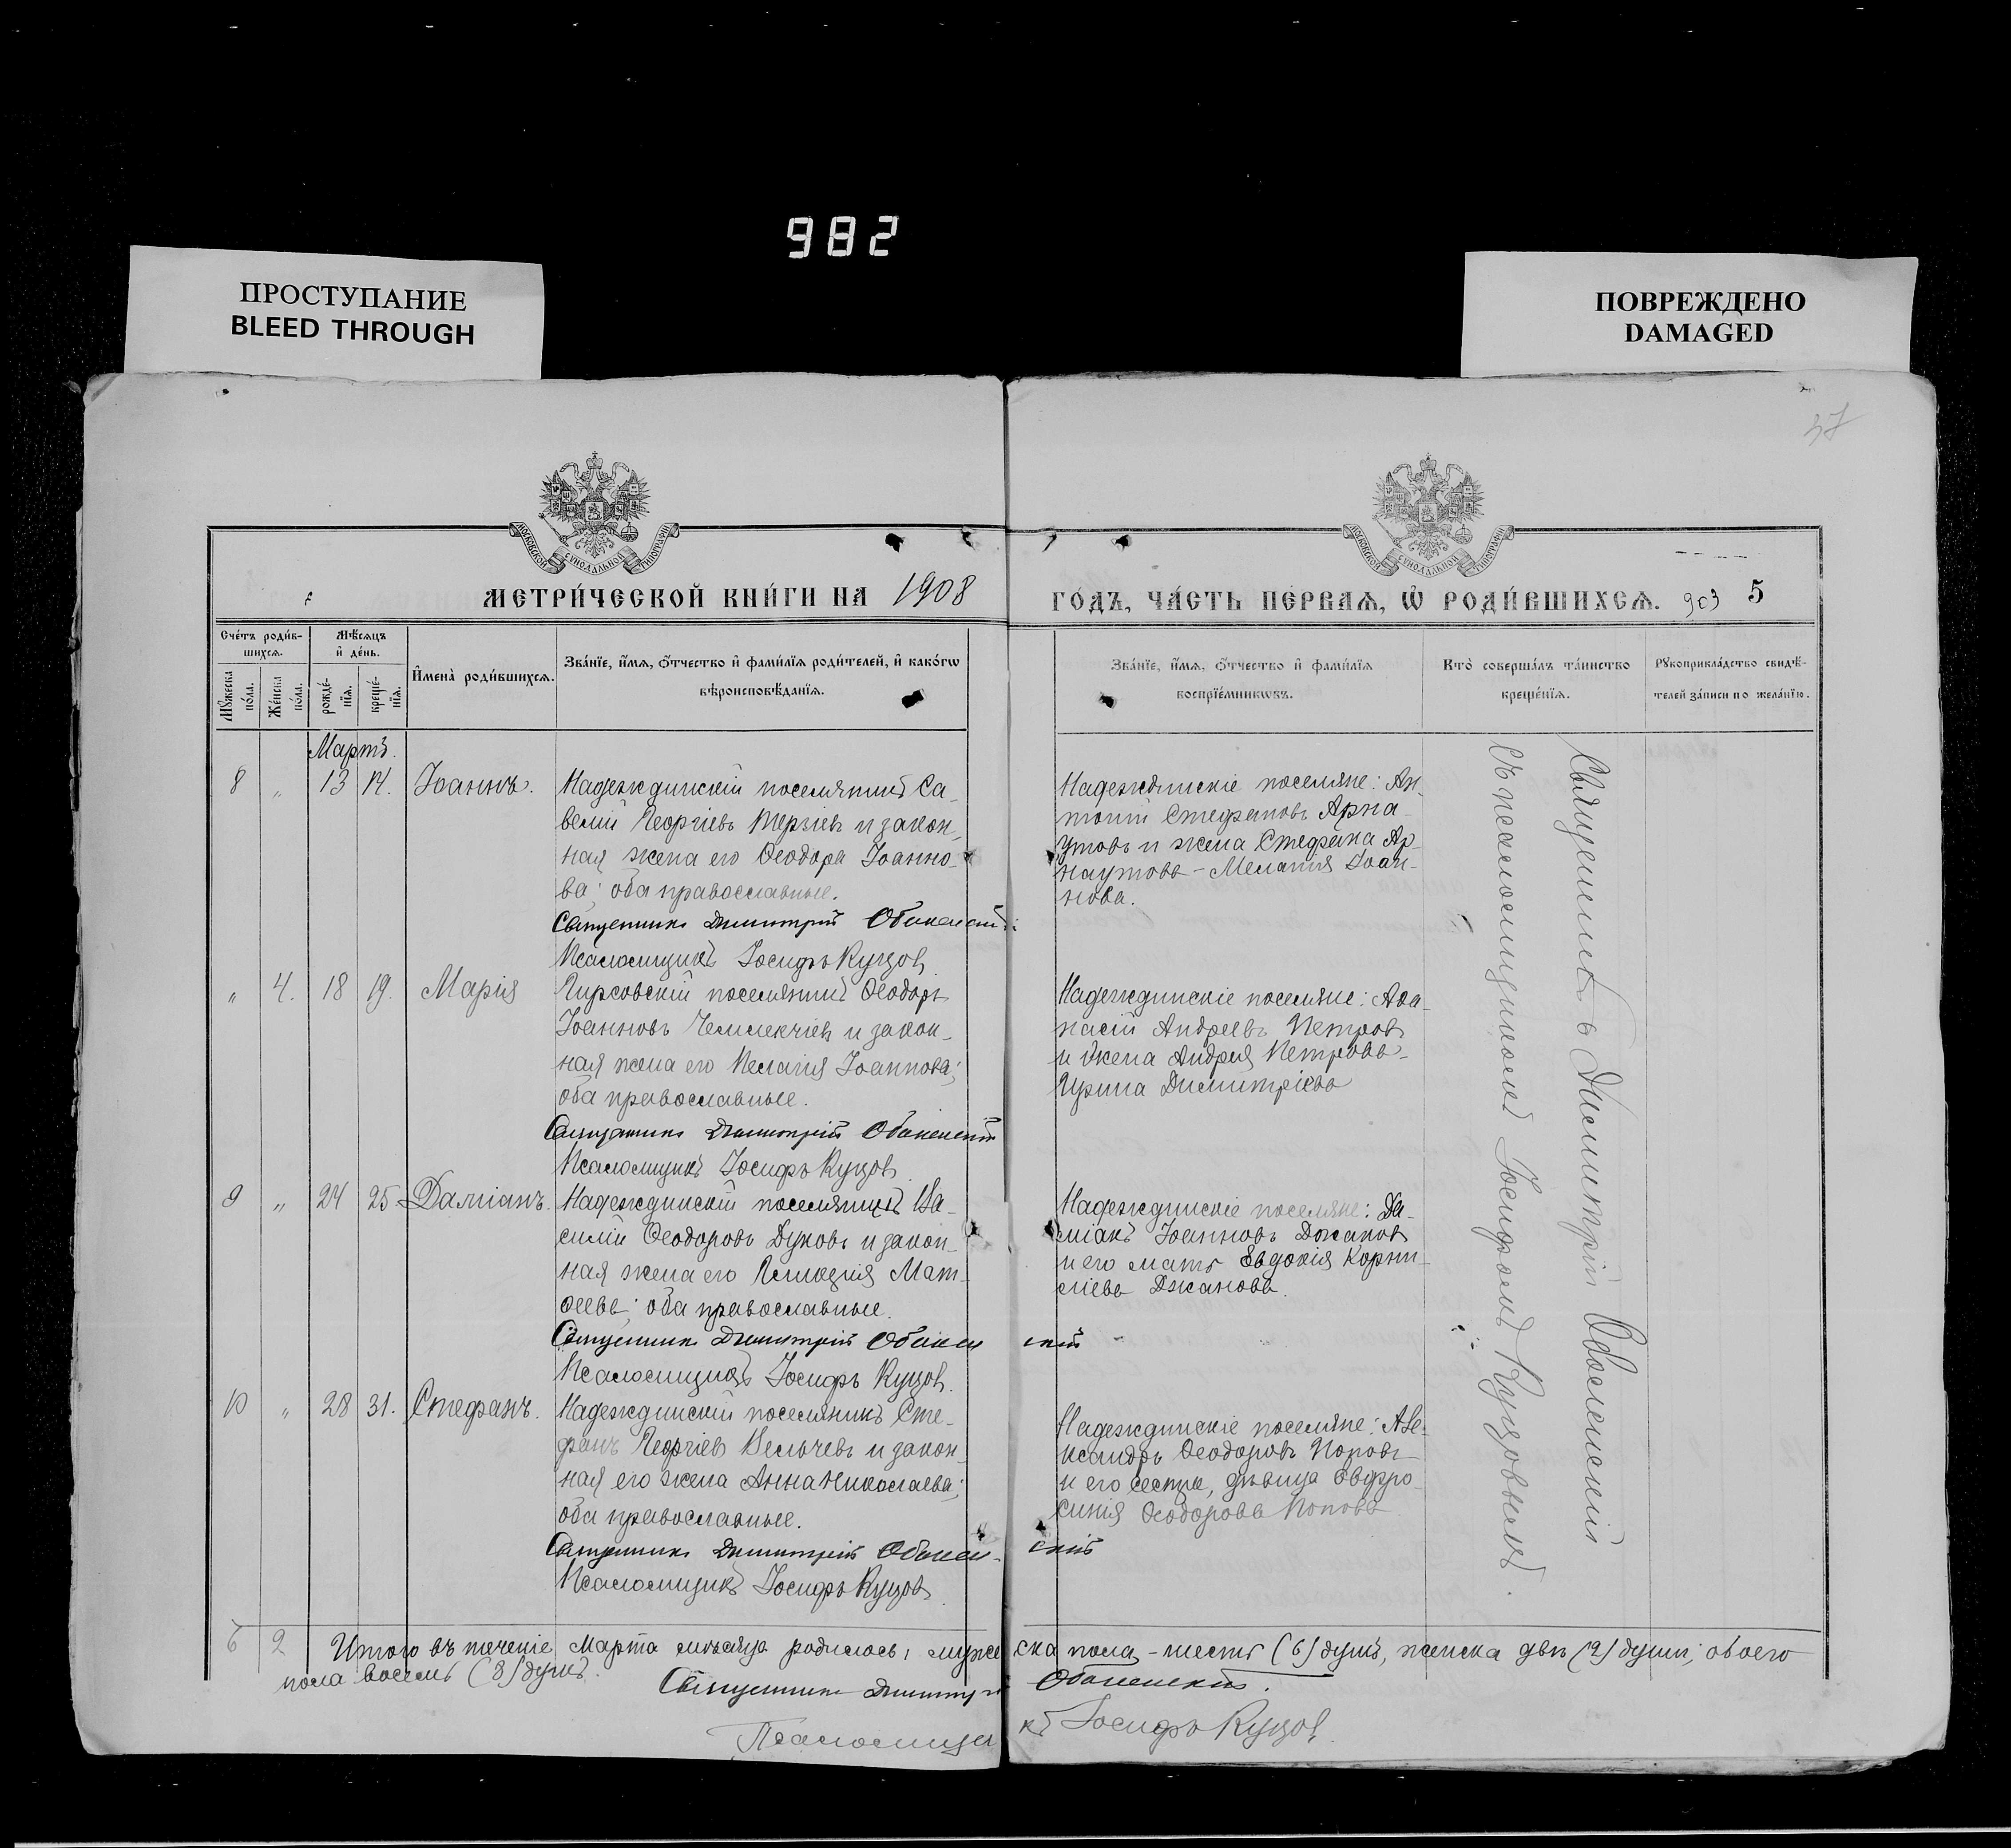 982
ПРОСТУПАНИЕ
BLEED THROUGH
ПОВРЕЖДЕНО
DAMAGED
37
МОСКОВСКОЙ СѴНОДАЛЬНОЙ ТИПОГРАФІИ
МОСКОВСКОЙ СѴНОДАЛЬНОЙ ТИПОГРАФІИ
МЕТРИ́ЧЕСКОЙ КНИ́ГИ НА 1908
ГО́ДЪ, ЧА́СТЬ ПЕ́РВАѦ, Ѽ РОДИ́ВШИХСѦ. 903 5
Сче́тъ роди́в-
шихсѧ.
Мꙋ́жеска по́ла.
Же́нска по́ла.
Мѣ́сѧцъ
и҆ де́нь.
рожде́-
нїѧ.
креще́-
нїѧ.
И҆мена̀ роди́вшихсѧ.
Зва́нїе, и҆́мѧ, ѻ҆́тчество и҆ фами́лїѧ роди́телей, и҆ како́гѡ
вѣроисповѣ́данїѧ.
Зва́нїе, и҆́мѧ, ѻ҆́тчество и҆ фами́лїѧ
воспрїе́мникѡвъ.
Кто̀ соверша́лъ та́инство
креще́нїѧ.
Рꙋкоприкла́дство свидѣ́-
телей за́писи по жела́нїю.
Мартъ.
8 " 13 14. Іоаннъ.
Надеждинскій поселянинъ Са-
велій Георгіевъ Терзіевъ и закон-
ная жена его Ѳеодора Іоанно-
ва; оба православные.
Священникъ Димитрій
Псаломщикъ Іосифъ Куцовъ
Надеждинскіе поселяне: Ан-
тоній Стефановъ Арна-
утовъ и жена Стефана Ар-
наутова - Меланія Іоан-
нова.
" 4. 18 19. Марія
Чирсовскій поселянинъ Ѳеодоръ
Іоанновъ Челлекчіевъ и закон-
ная жена его Пелагія Іоаннова;
оба православные.
Священникъ Димитрій
Псаломщикъ Іосифъ Куцовъ
Надеждинскіе поселяне: Аѳа-
насій Андреевъ Петровъ
и жена Андрея Петрова-
Ирина Димитріева
9 " 24 25 Даміанъ.
Надеждинскій поселянинъ Ва-
силій Ѳеодоровъ Дуковъ и закон-
ная жена его Гликерія Мат-
ѳеева; оба православные.
Священникъ Димитрій
Псаломщикъ Іосифъ Куцовъ.
Надеждинскіе поселяне: Да-
міанъ Іоанновъ Джановъ
и его мать Евдокія Корни-
ліева Джанова.
10 " 28 31. Стефанъ.
Надеждинскій поселянинъ Сте-
фанъ Георгіевъ Вельчевъ и закон-
ная его жена Анна Николаева;
оба православные.
Священникъ Димитрій
Псаломщикъ Іосифъ Куцовъ
Надеждинскіе поселяне: Але-
ксандръ Ѳеодоровъ Поповъ
и его сестра, дѣвица Евфро-
синія Ѳеодорова Попова
Священникъ Димитрій
съ псаломщикомъ Іосифомъ Куцовымъ.
6 2 Итого въ теченіе Марта мѣсяца родилось: муже ска пола - шесть (6) душъ, женска двѣ (2) души; обоего
пола восемь (8) душъ.
Священникъ Димитрій
Псаломщикъ Іосифъ Куцовъ